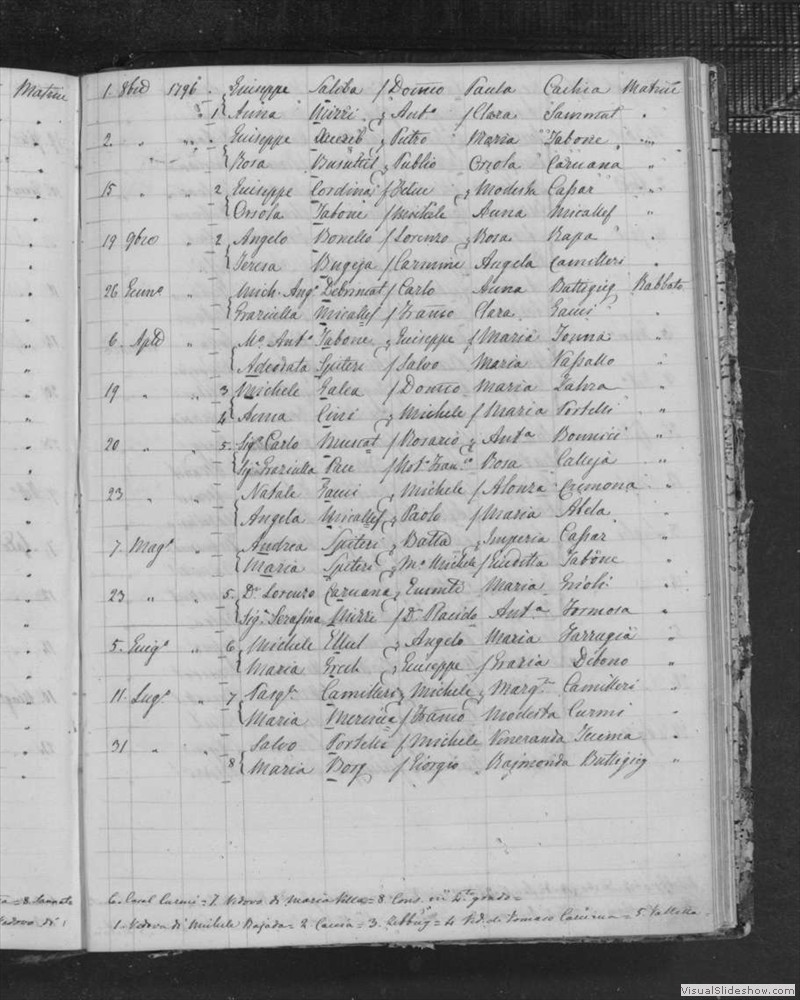 Matrice 1 8bre 1796 Giuseppe Saliba / Dom.co Paula Cachia Matrice
1 Anna Mizzi Ant.o / Clara Sammut "
2 " " Giuseppe Pietro Maria Tabone "
Rosa Busuttil Publio Orsola Caruana "
15 " " 2 Giuseppe Cordina / Modesta Cassar "
Orsola Tabone / Michele Anna Micallef "
19 9bre " 2 Angelo Bonello / Lorenzo Rosa Rapa "
Teresa Bugeja / Carmine Angela Camilleri "
26 " Mich. Ang.o / Carlo Anna Buttigieg Rabbato
Graziella Micallef / Franco Clara "
6 Aple " M.o Ant.o Tabone Giuseppe / Maria Tonna "
Adeodata Spiteri / Salvo Maria Vassallo "
19 " " 3 Michele Galea / Dom.co Maria Zahra "
4 Anna Cini Michele / Maria Portelli "
20 " " 5 Sig.r Carlo Muscat / Rosario Ant.a Bonnici "
Sig.a Graziella Pace / Not. Fran.co Rosa Calleja "
23 " " Natale Michele / Alonza Cremona "
Angela Micallef Paolo / Maria Abela "
7 Mag.o " Andrea Spiteri Batta Imperia Cassar "
Maria Spiteri M.o Michele / Tabone "
23 " " 5 D.r Lorenzo Caruana Maria Grioli "
Sig.a Serafina Mizzi / D.r Placido Ant.a Formosa "
5 Giug.o " 6 Michele Ellul Angelo Maria Farrugia "
Maria Grech Giuseppe / Grazia Debono "
11 Lug.o " 7 Pasq.le Camilleri Michele Marg.ta Camilleri "
Maria / Franco Modesta Curmi "
31 " " Salvo Portelli / Michele Veneranda "
8 Maria Borg / Giorgio Raimonda Buttigieg "
6. Casal Curmi = 7. Vedovo di Maria Villa = 8. Cons. in 4.to grado =
1. Vedova di Michele Bajada = 2. Caccia = 3. Zebbug = 4. Ved. di Tomaso = 5. Valletta
VisualSlideshow.com